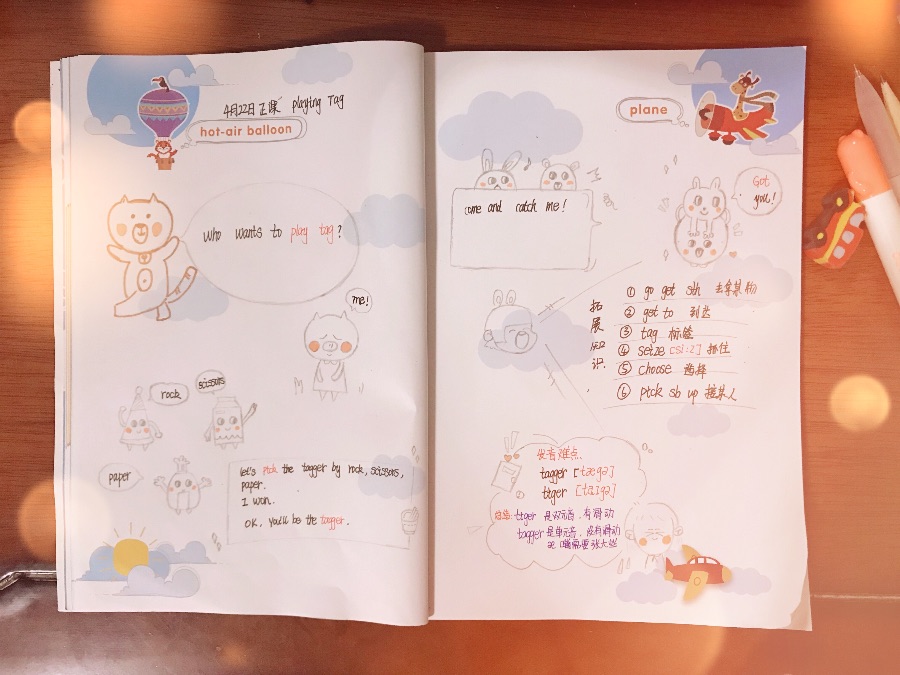 4月22日 正课 playing Tag
hot-air balloon
who wants to play tag?
me!
rock
scissors
paper
let's pick the tagger by rock, scissors,
paper.
I won.
OK, you'll be the tagger.
plane
come and catch me!
Got
you!
拓展知识
① go get sth 去拿某物
② get to 到达
③ tag 标签
④ seize [si:z] 抓住
⑤ choose 选择
⑥ pick sb up 接某人
发音难点
tagger [tægə]
tiger [taɪgə]
总结: tiger 是双元音，有滑动
tagger是单元音，没有滑动
æ 嘴需要张大些